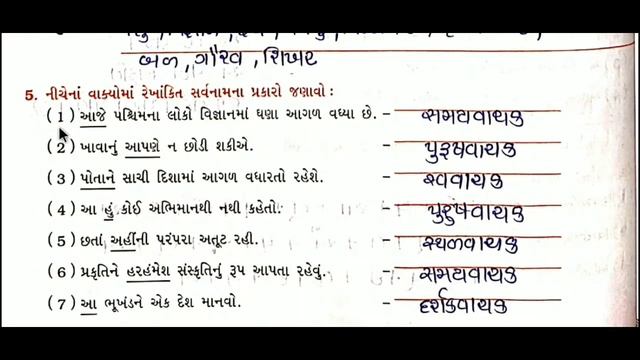 બળ, ગૌરવ, શિખર
5. નીચેનાં વાક્યોમાં રેખાંકિત સર્વનામના પ્રકારો જણાવો :
(1) આજે પશ્ચિમના લોકો વિજ્ઞાનમાં ઘણા આગળ વધ્યા છે. - સમયવાચક
(2) ખાવાનું આપણે ન છોડી શકીએ. - પુરુષવાચક
(3) પોતાને સાચી દિશામાં આગળ વધારતો રહેશે. - સ્વવાચક
(4) આ હું કોઈ અભિમાનથી નથી કહેતો. - પુરુષવાચક
(5) છતાં અહીંની પરંપરા અતૂટ રહી. - સ્થળવાચક
(6) પ્રકૃતિને હરહંમેશ સંસ્કૃતિનું રૂપ આપતા રહેવું. - સમયવાચક
(7) આ ભૂખંડને એક દેશ માનવો. - દર્શકવાચક